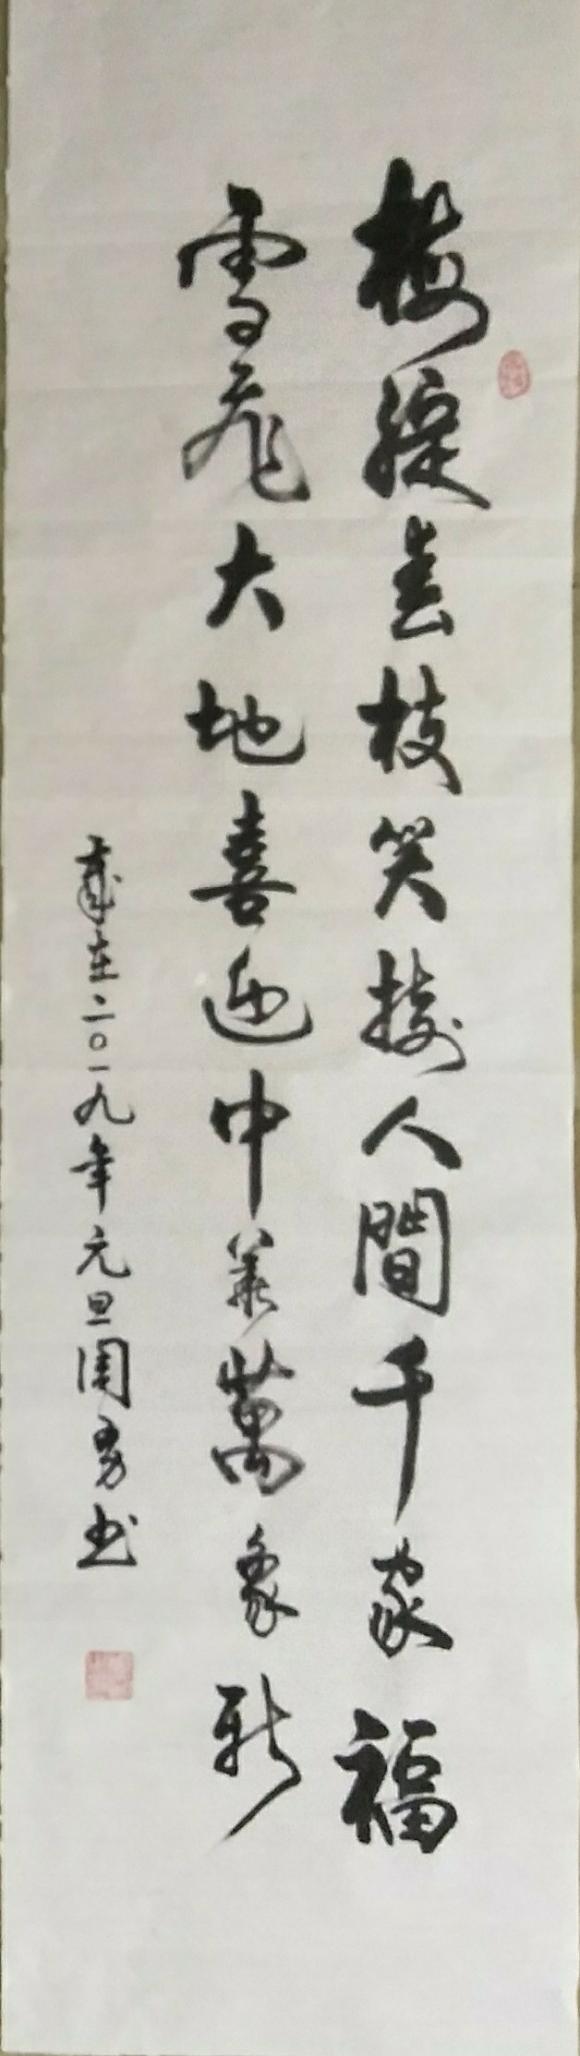 梅綻春枝笑接人間千家福
雪飛大地喜迎中華萬象新
歲在二〇一九年元旦国勇书